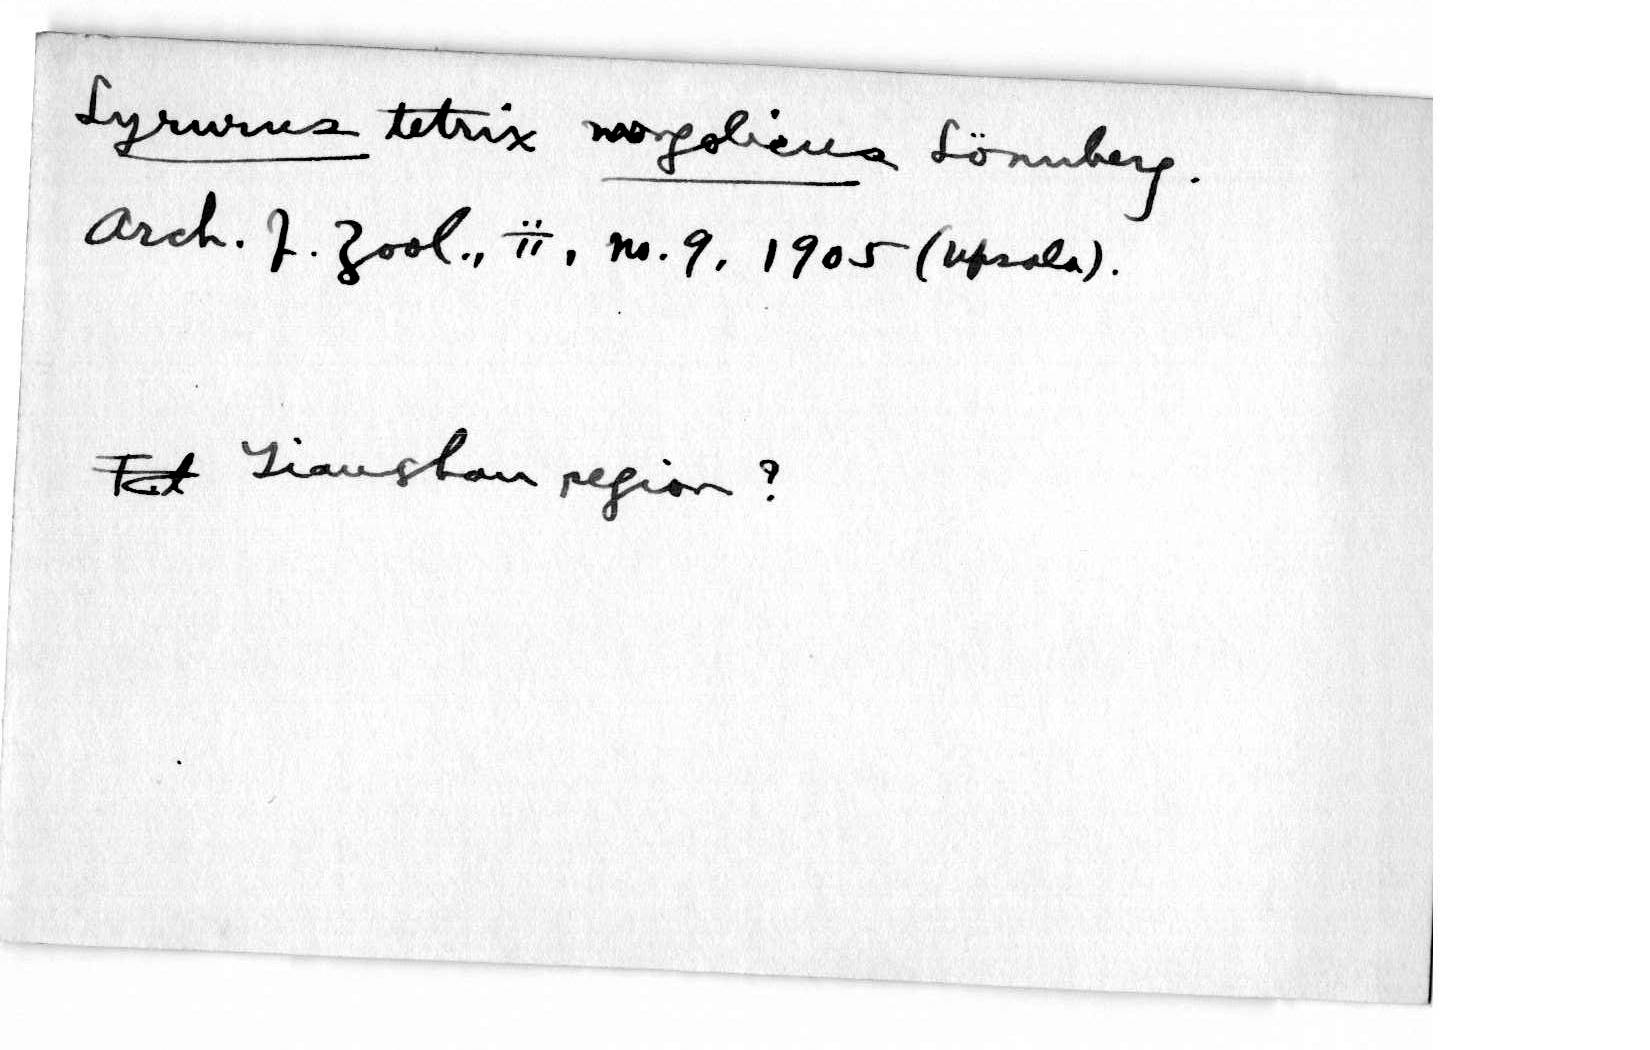 Lyrurus tetrix mongolicus Lönnberg.
Arch. f. Zool., ii, no. 9, 1905 (Upsala).
Tianshan region ?